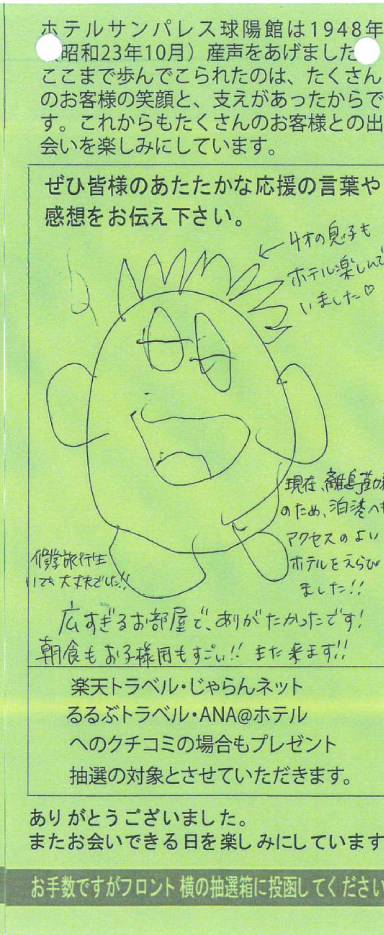 ホテルサンパレス球陽館は1948年
昭和23年10月）産声をあげました
ここまで歩んでこられたのは、たくさん
のお客様の笑顔と、支えがあったからで
す。これからもたくさんのお客様との出
会いを楽しみにしています。
ぜひ皆様のあたたかな応援の言葉や
感想をお伝え下さい。
←4才の息子も
ホテル楽しんで
いました♡
現在、離島
のため、泊港へ
アクセスのよい
ホテルをえらび
ました!!
修学旅行生
いても大丈夫でした!!
広すぎるお部屋で、ありがたかったです!
朝食もお子様用もすごい!! また来ます!!
楽天トラベル・じゃらんネット
るるぶトラベル・ANA@ホテル
へのクチコミの場合もプレゼント
抽選の対象とさせていただきます。
ありがとうございました。
またお会いできる日を楽しみにしています
お手数ですがフロント横の抽選箱に投函してください